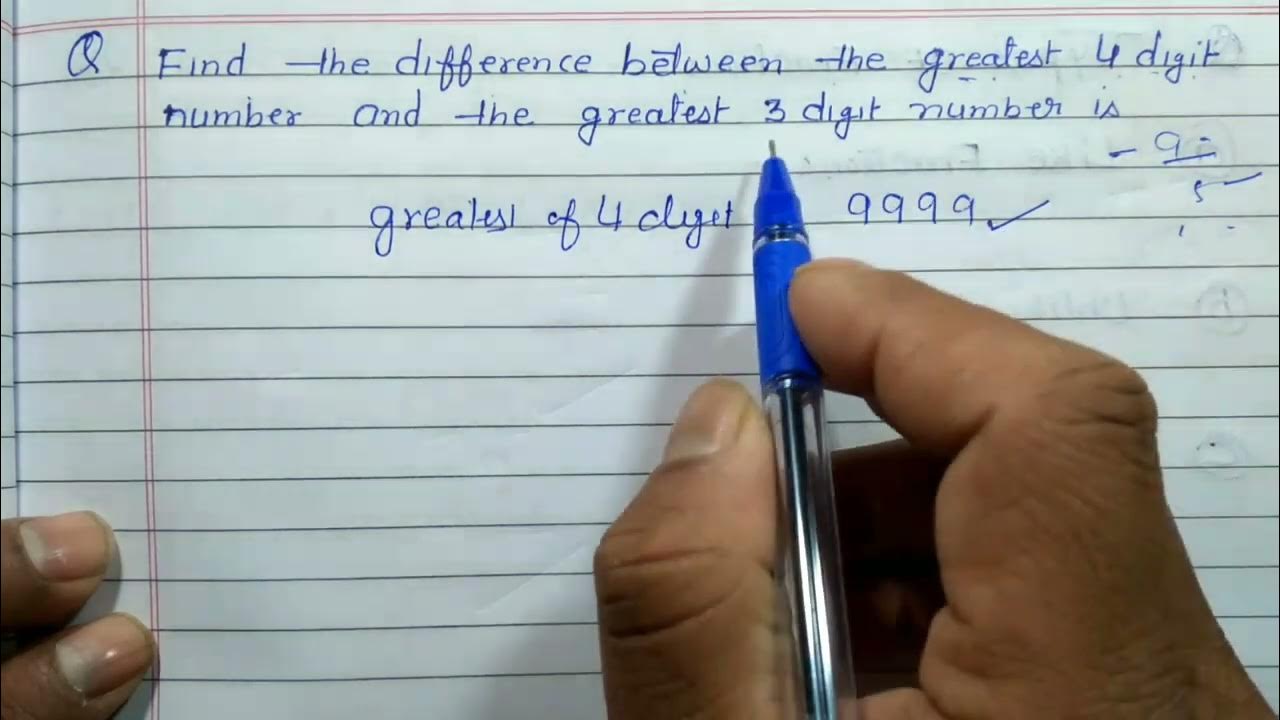 Q Find the difference between the greatest 4 digit
number and the greatest 3 digit number is
- 9
5
greatest of 4 digit 9999